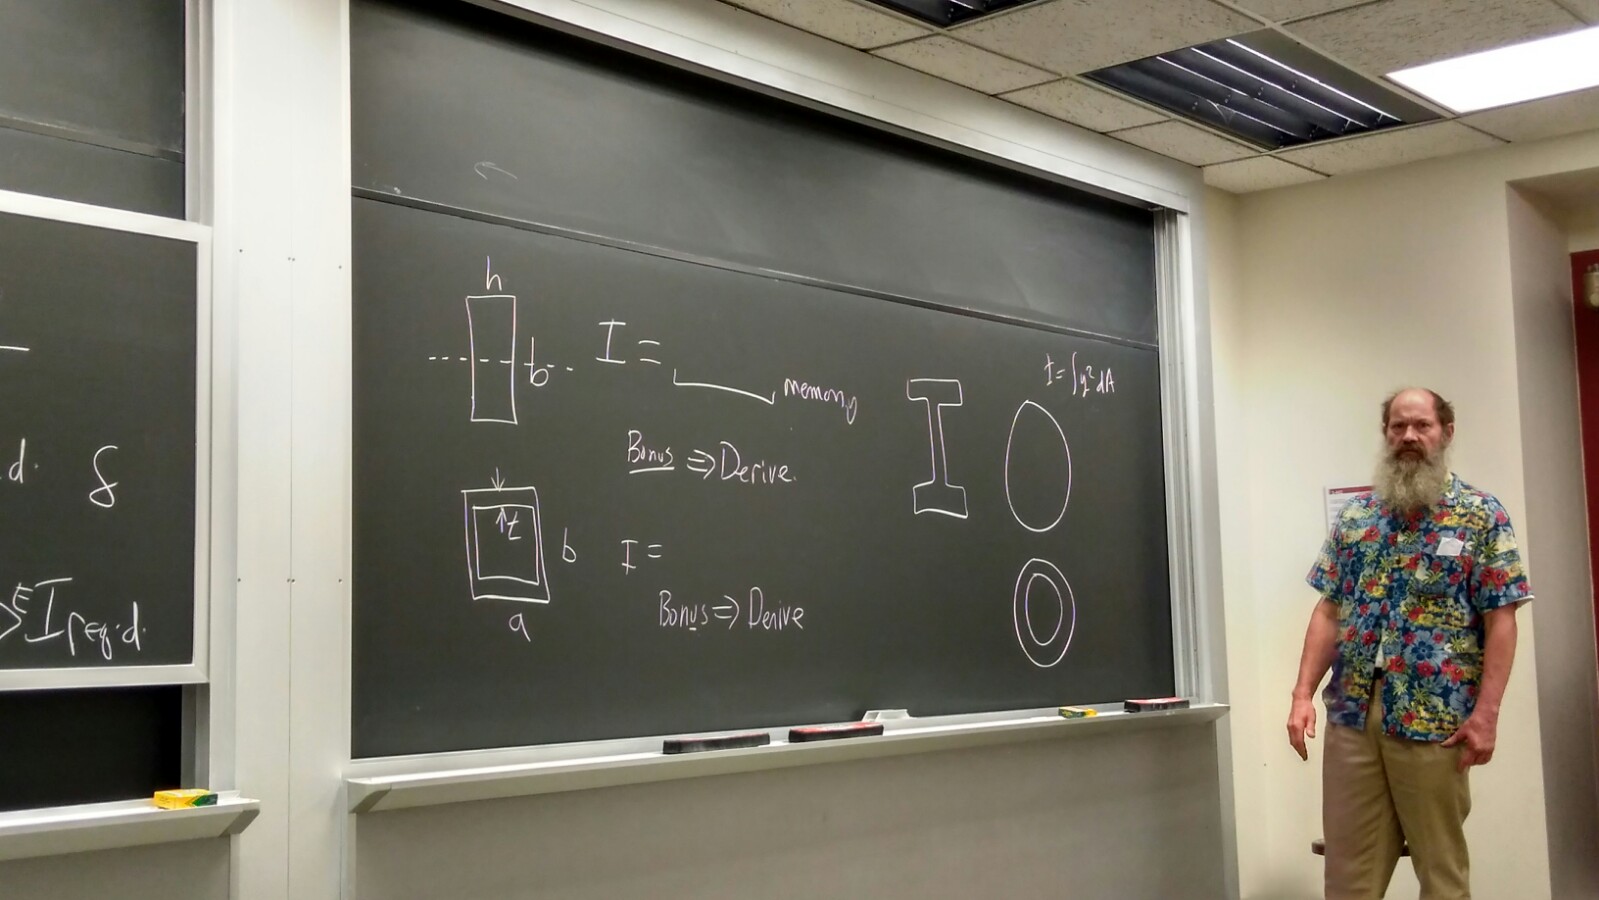 d. δ
I req.d.
h
b
I =
memory
Bonus ⇒ Derive.
t
b
a
I =
Bonus ⇒ Derive
I = ∫y² dA